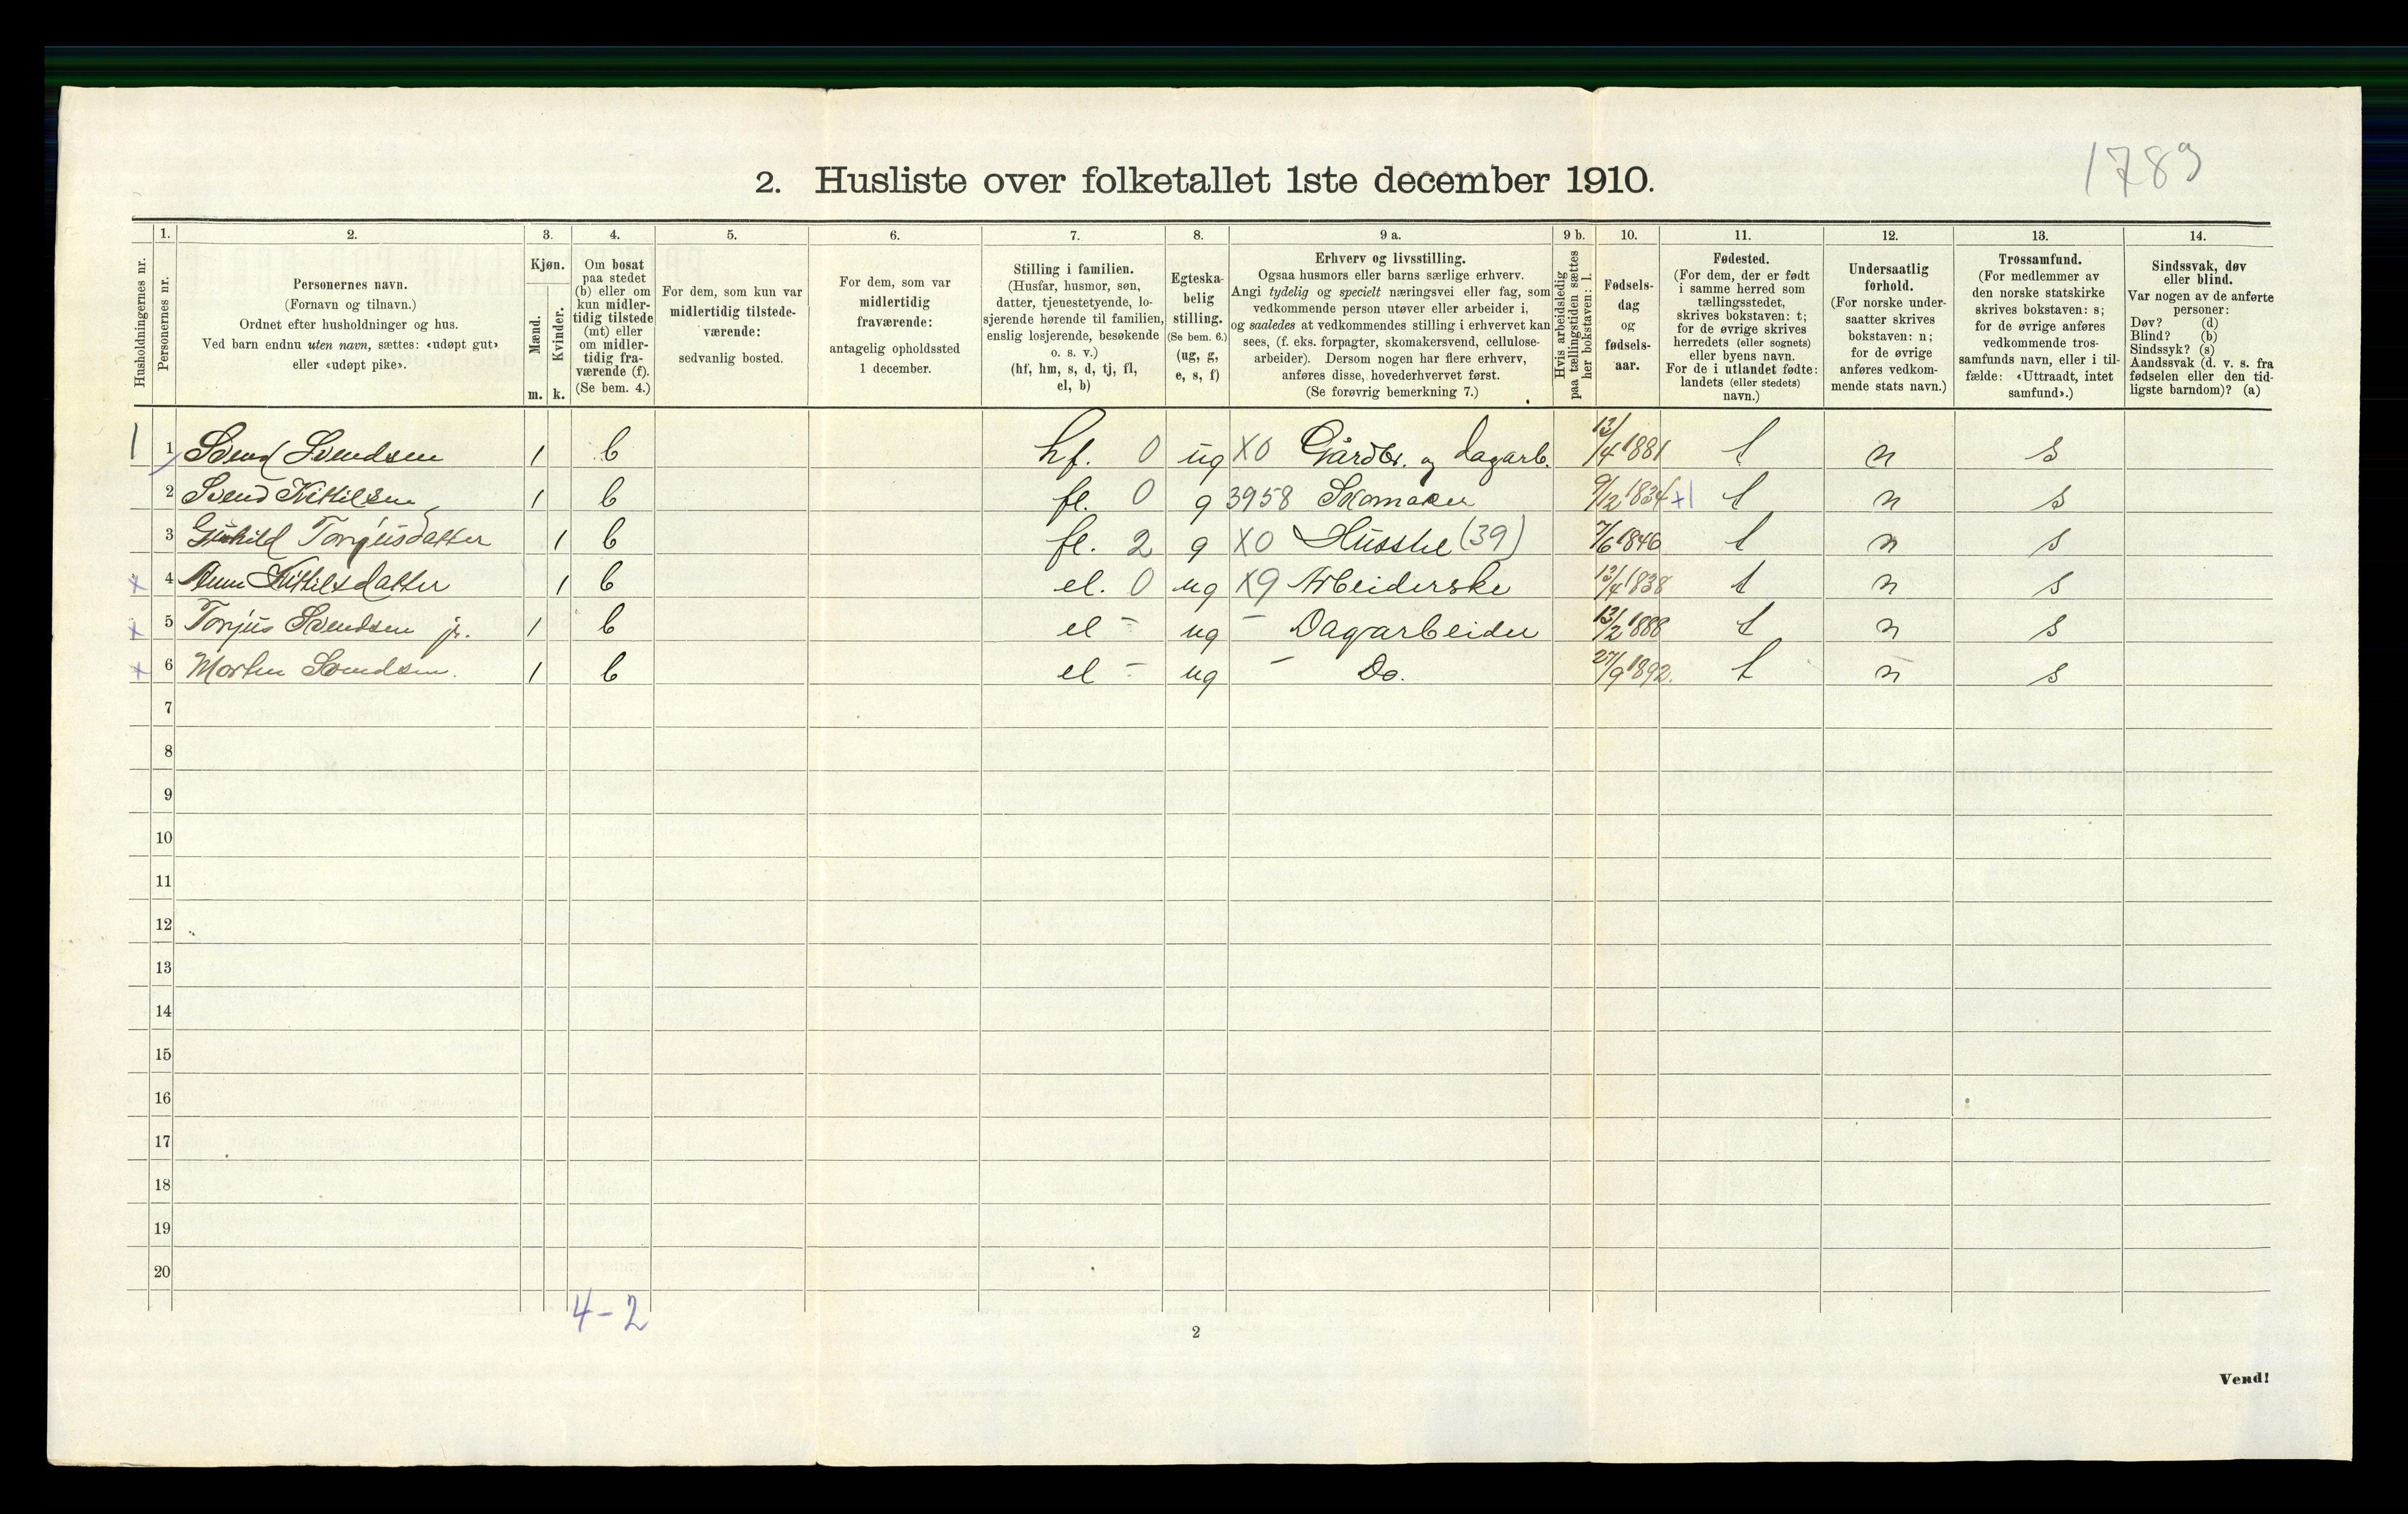 1789
2. Husliste over folketallet 1ste december 1910.
Husholdningernes nr.
1.
Personernes nr.
2.
Personernes navn.
(Fornavn og tilnavn.)
Ordnet efter husholdninger og hus.
Ved barn endnu uten navn, sættes: «udøpt gut»
eller «udøpt pike».
3.
Kjøn.
Mænd.
Kvinder.
m. k.
4.
Om bosat
paa stedet
(b) eller om
kun midler-
tidig tilstede
(mt) eller
om midler-
tidig fra-
værende (f).
(Se bem. 4.)
5.
For dem, som kun var
midlertidig tilstede-
værende:
sedvanlig bosted.
6.
For dem, som var
midlertidig
fraværende:
antagelig opholdssted
1 december.
7.
Stilling i familien.
(Husfar, husmor, søn,
datter, tjenestetyende, lo-
sjerende hørende til familien,
enslig losjerende, besøkende
o. s. v.)
(hf, hm, s, d, tj, fl,
el, b)
8.
Egteska-
belig
stilling.
(Se bem. 6.)
(ug, g,
e, s, f)
9 a.
Erhverv og livsstilling.
Ogsaa husmors eller barns særlige erhverv.
Angi tydelig og specielt næringsvei eller fag, som
vedkommende person utøver eller arbeider i,
og saaledes at vedkommendes stilling i erhvervet kan
sees, (f. eks. forpagter, skomakersvend, cellulose-
arbeider). Dersom nogen har flere erhverv,
anføres disse, hovederhvervet først.
(Se forøvrig bemerkning 7.)
9 b.
Hvis arbeidsledig
paa tællingstiden sættes
her bokstaven: l.
10.
Fødsels-
dag
og
fødsels-
aar.
11.
Fødested.
(For dem, der er født
i samme herred som
tællingsstedet,
skrives bokstaven: t;
for de øvrige skrives
herredets (eller sognets)
eller byens navn.
For de i utlandet fødte:
landets (eller stedets)
navn.)
12.
Undersaatlig
forhold.
(For norske under-
saatter skrives
bokstaven: n;
for de øvrige
anføres vedkom-
mende stats navn.)
13.
Trossamfund.
(For medlemmer av
den norske statskirke
skrives bokstaven: s;
for de øvrige anføres
vedkommende tros-
samfunds navn, eller i til-
fælde: «Uttraadt, intet
samfund».)
14.
Sindssvak, døv
eller blind.
Var nogen av de anførte
personer:
Døv? (d)
Blind? (b)
Sindssyk? (s)
Aandssvak (d. v. s. fra
fødselen eller den tid-
ligste barndom)? (a)
1 1 Svend Svendsen 1 b hf. 0 ug X0 Gårdbr. og dagarb. 13/4 1881 t n s
2 Svend Kittilsen 1 b fl. 0 g 3958 Skomaker 9/12 1834 +1 t n s
3 Gunhild Torjusdatter 1 b fl. 2 g X0 Husstel (39) 7/6 1846 t n s
x 4 Anne Kittilsdatter 1 b el. 0 ug X9 Arbeiderske 13/4 1838 t n s
x 5 Torjus Svendsen jr. 1 b el - ug - Dagarbeider 13/2 1888 t n s
x 6 Morten Svendsen. 1 b el - ug - Do. 27/9 1892. t n s
7
8
9
10
11
12
13
14
15
16
17
18
19
20
4-2
2
Vend!